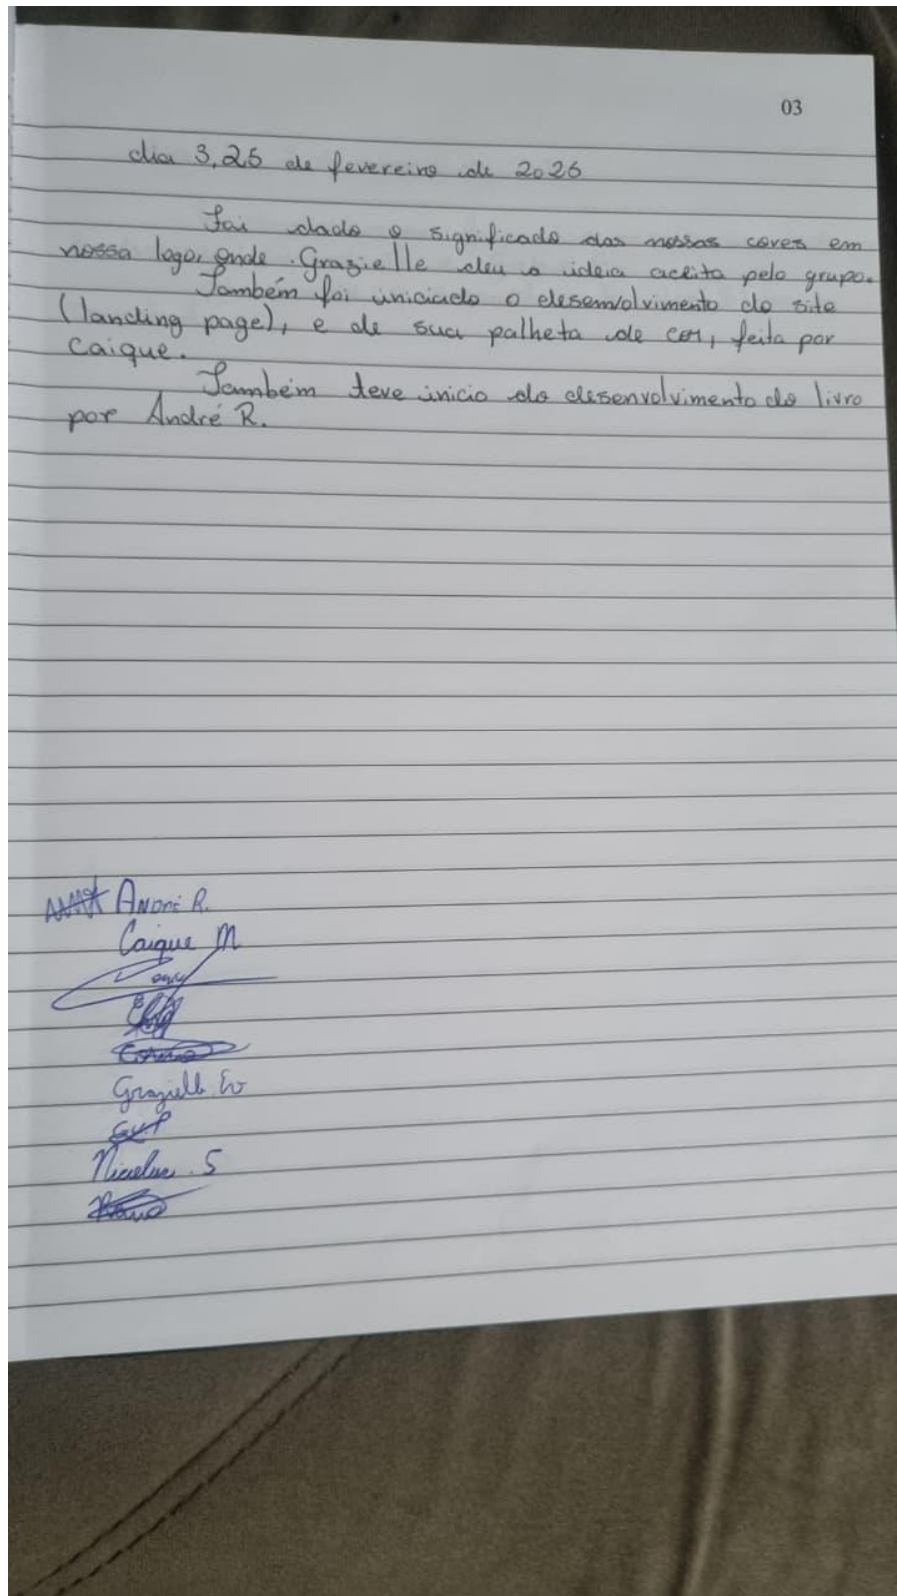 03
dia 3, 25 de fevereiro de 2026
Foi dado o significado das nossas cores em
nossa logo, onde Grazielle deu a ideia aceita pelo grupo.
Também foi iniciado o desenvolvimento do site
(landing page), e de sua palheta de cor, feita por
Caique.
Também teve inicio do desenvolvimento do livro
por André R.
André R.
Caique M
Grazielle
Nicolas S